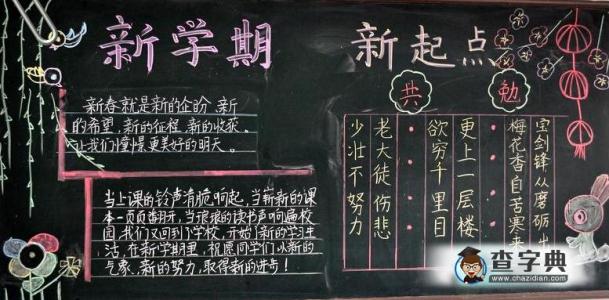 新学期 新起点
新春就是新的企盼 新
的希望,新的征程,新的收获。
让我们憧憬更美好的明天。
当上课的铃声清脆响起,当崭新的课
本一页页翻开,当琅琅的读书声响遍校
园,我们又回到了学校,开始了新的学习生
活,在新学期里,祝愿同学们以新的
气象,新的努力,取得新的进步!
共勉
宝剑锋从磨砺出
梅花香自苦寒来
更上一层楼
欲穷千里目
老大徒伤悲
少壮不努力
查字典
www.chazidian.com